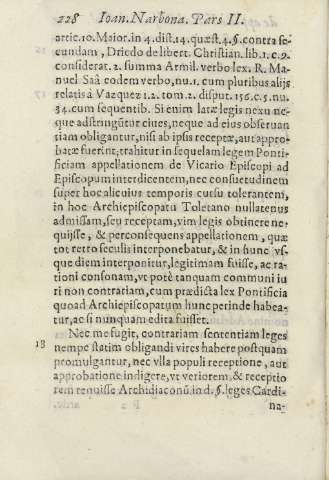 228 Ioan. Narbona. Pars II.
artic. 10. Maior. in 4. dist. 14. quæst. 4. §. contra se-
cundam, Driedo de libert. Christian. lib. 1. c. 9.
considerat. 2. summa Armil. verbo lex. R. Ma-
nuel Saà codem verbo, nu. 1. cum pluribus alijs
relatis à Vazquez 1. 2. tom. 2. disput. 156. c. 5. nu.
34. cum sequentib. Si enim latæ legis nexu ne-
que adstringũtur ciues, neque ad eius obseruan
tiam obligantur, nisi ab ipsis receptæ, aut appro-
batæ fuerint, trahitur in sequelam legem Ponti-
ficiam appellationem de Vicario Episcopi ad
Episcopum interdicentem, nec consuetudinem
super hoc alicuius temporis cursu tolerantem,
in hoc Archiepiscopatu Toletano nullatenus
admissam, seu receptam, vim legis obtinere ne-
quisse, & perconsequens appellationem, quæ
tot retro seculis interponebatur, & in hunc vs-
que diem interponitur, legitimam fuisse, ac ra-
tioni consonam, vt potè tanquam communi iu
ri non contrariam, cum prædicta lex Pontificia
quoad Archiepiscopatum hunc perinde habea-
tur, ac si nunquam edita fuisset.
18 Nec me fugit, contrariam sententiam leges
nempe statim obligandi vires habere postquam
promulgantur, nec vlla populi receptione, aut
approbatione indigere, vt veriorem, & receptio
rem tenuisse Archidiaconũ in d. §. leges Cardi-
na-